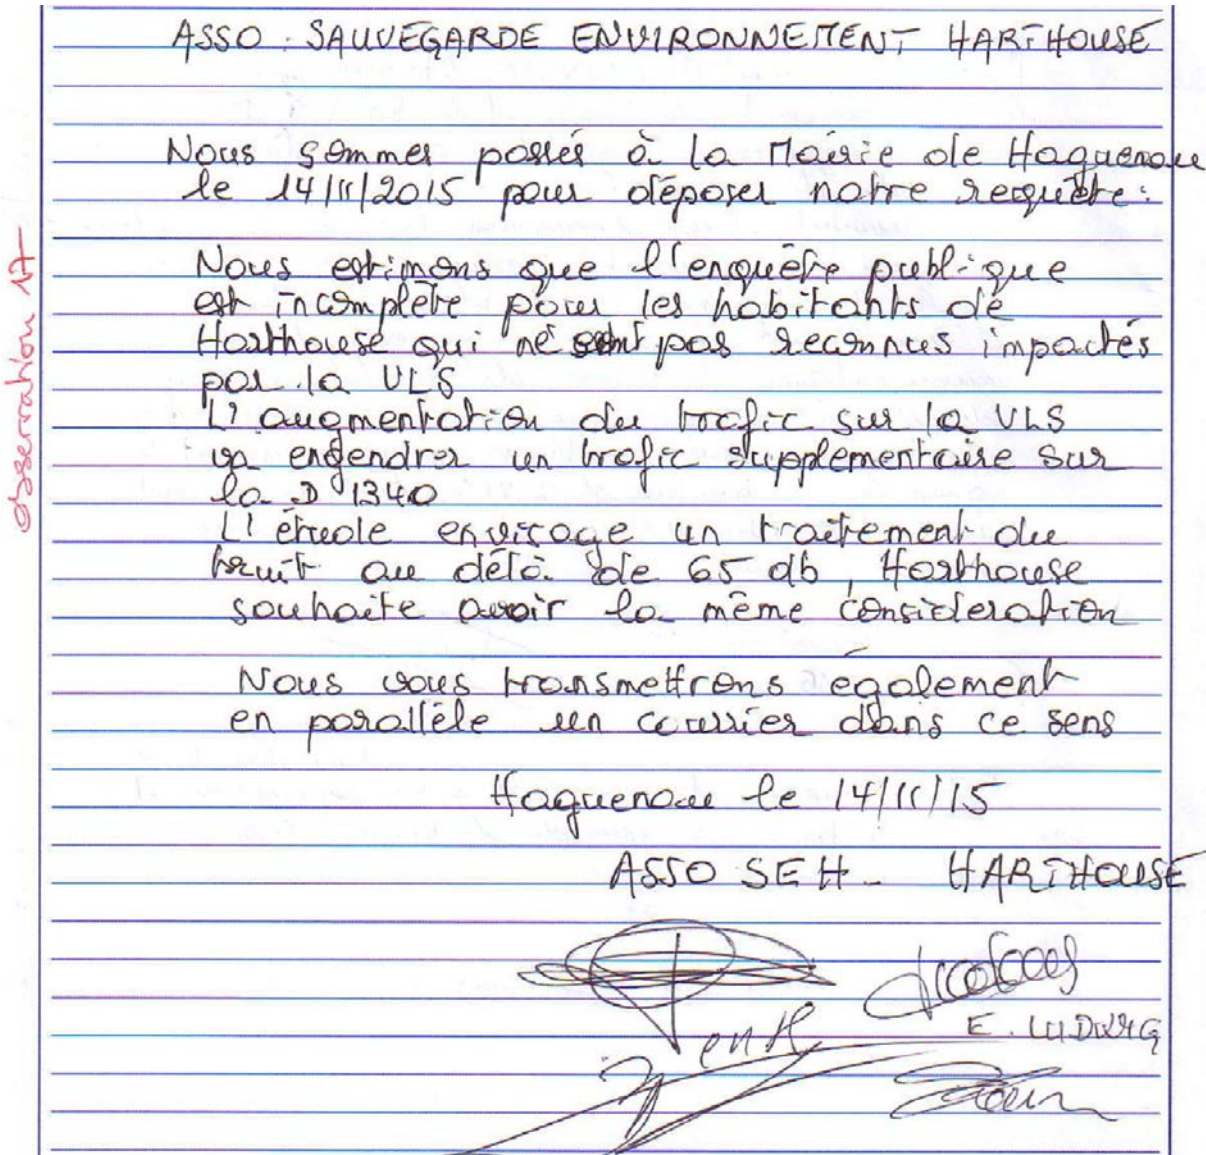 ASSO : SAUVEGARDE ENVIRONNEMENT HARTHOUSE
Nous sommes passés à la Mairie de Haguenau
le 14/11/2015 pour déposer notre requête :
observation 17
Nous estimons que l'enquête publique
est incomplète pour les habitants de
Harthouse qui ne sont pas reconnus impactés
par la VLS
L'augmentation du trafic sur la VLS
va engendrer un trafic supplémentaire sur
la D 1340
L'étude envisage un traitement du
bruit au délà de 65 db, Harthouse
souhaite avoir la même considération
Nous vous transmettrons également
en parallèle un courrier dans ce sens
Haguenau le 14/11/15
ASSO SEH - HARTHOUSE
E. LUDWIG